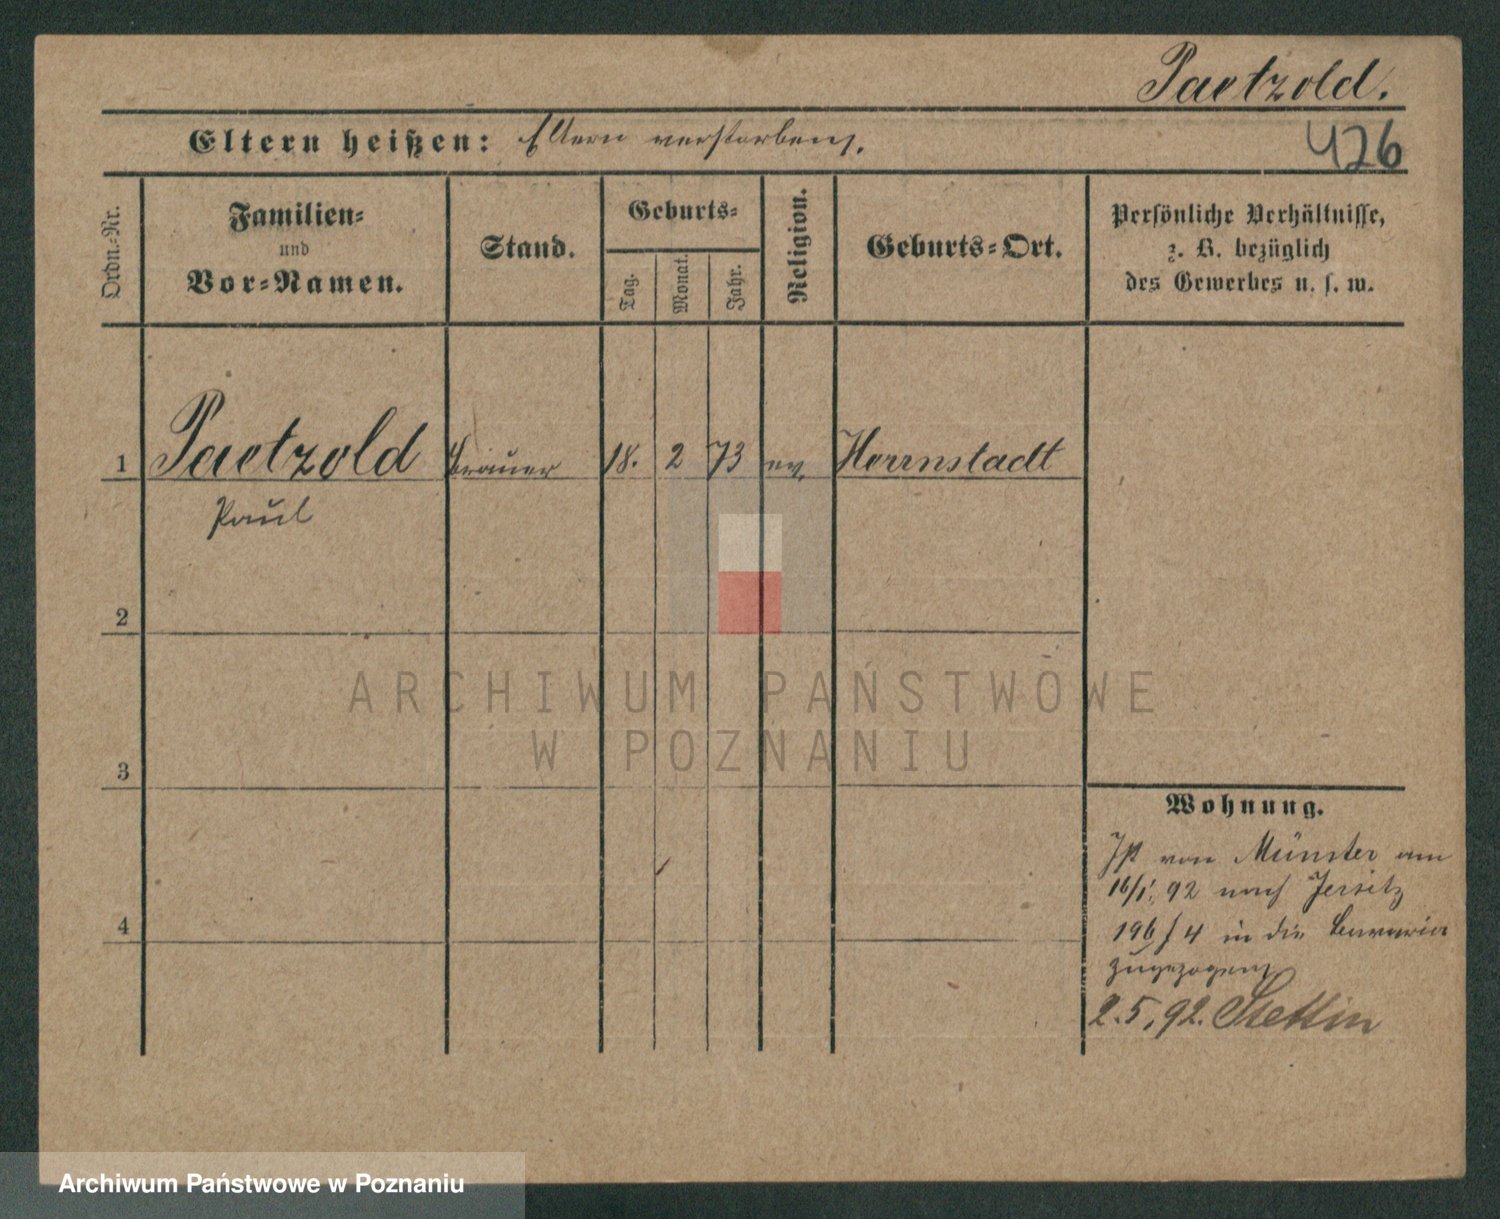 Paetzold.
426
Eltern heißen: Eltern verstorben.
Ordn.=Nr.
Familien=
und
Vor=Namen.
Stand.
Geburts=
Tag.
Monat.
Jahr.
Religion.
Geburts=Ort.
Persönliche Verhältnisse,
z. B. bezüglich
des Gewerbes u. s. w.
1 Paetzold Brauer 18. 2 73 ev. Herrnstadt
Paul
2
3
4
Wohnung.
Ist von Münster am
16/1. 92 nach Jersitz
196/4 in die Bavaria
zugezogen
2.5.92. Stettin
ARCHIWUM PAŃSTWOWE
W POZNANIU
Archiwum Państwowe w Poznaniu